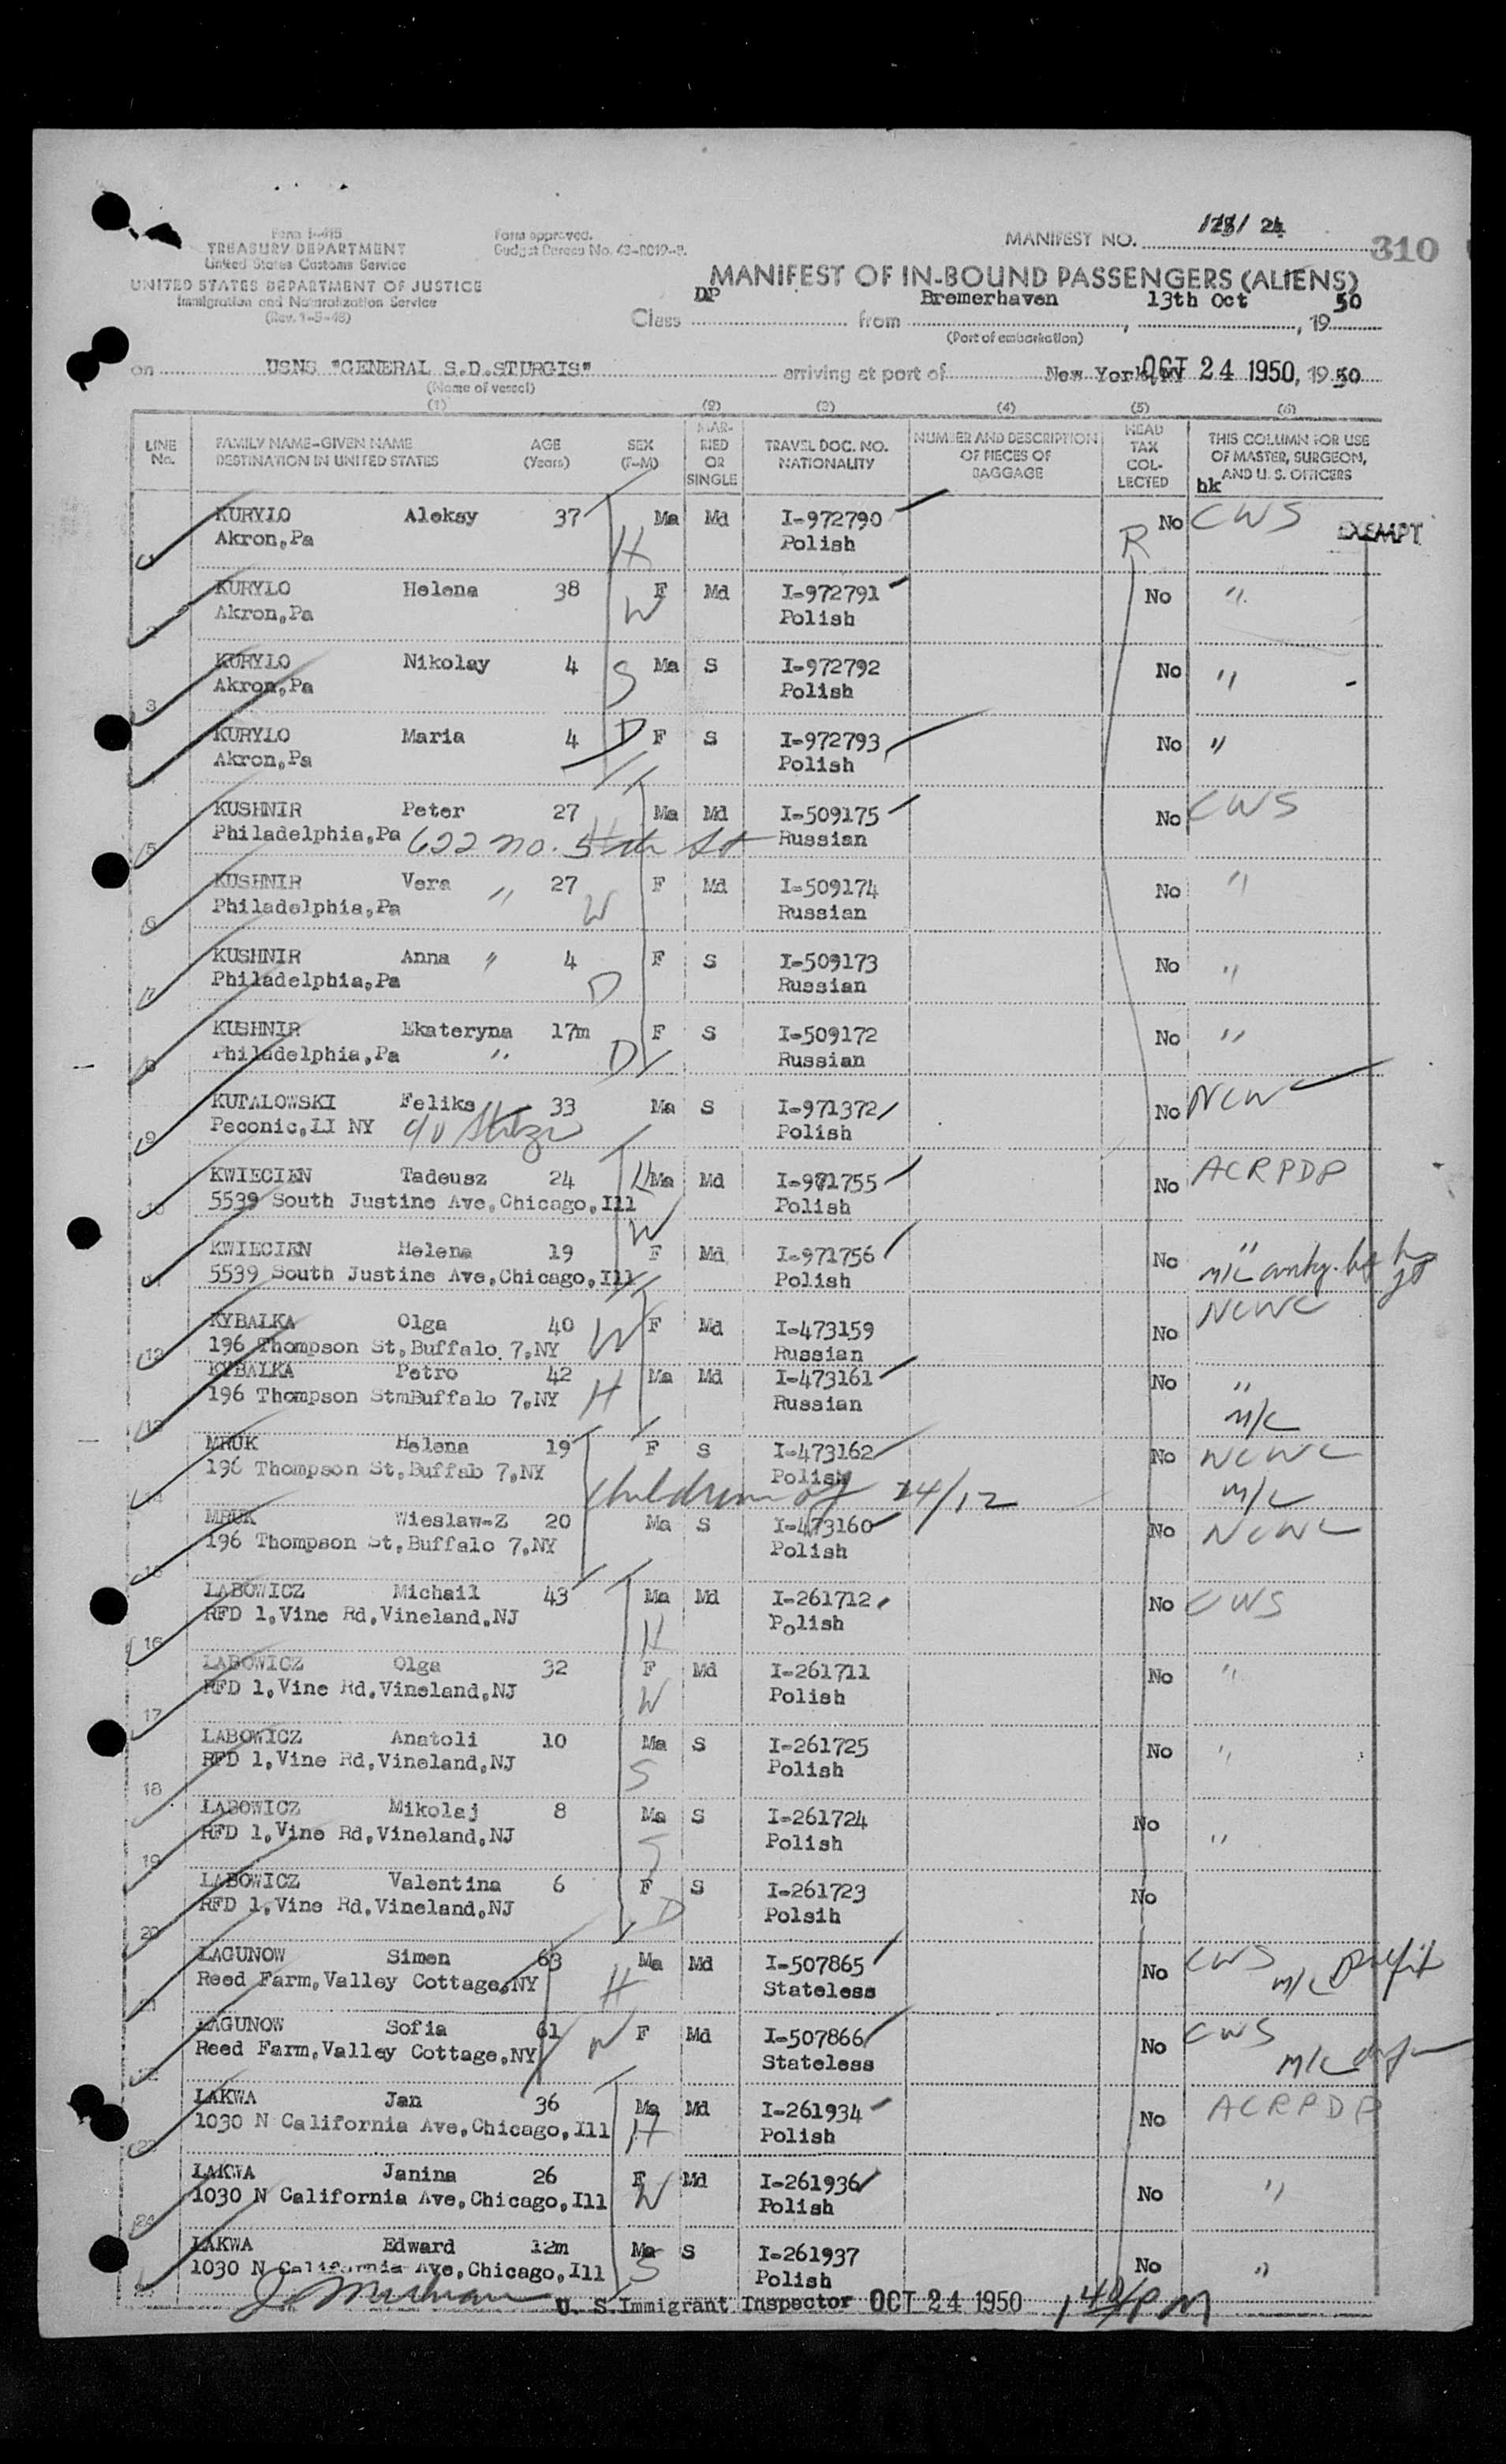 MANIFEST NO. 128/ 24
310
Form I-415
TREASURY DEPARTMENT
United States Customs Service
UNITED STATES DEPARTMENT OF JUSTICE
Immigration and Naturalization Service
(Rev. 1-5-48)
Form approved.
Budget Bureau No. 43-R019-2.
MANIFEST OF IN-BOUND PASSENGERS (ALIENS)
Class DP from Bremerhaven, 13th Oct, 19 50
(Port of embarkation)
on USNS "GENERAL S.D.STURGIS" arriving at port of New York, NY OCT 24 1950, 19 50
(Name of vessel)
(1) (2) (3) (4) (5) (6)
LINE No. FAMILY NAME-GIVEN NAME DESTINATION IN UNITED STATES AGE (Years) SEX (F-M) MARRIED OR SINGLE TRAVEL DOC. NO. NATIONALITY NUMBER AND DESCRIPTION OF PIECES OF BAGGAGE HEAD TAX COLLECTED THIS COLUMN FOR USE OF MASTER, SURGEON, AND U. S. OFFICERS
hk
KURYLO Aleksy 37 Ma Md I-972790 No CWS EXEMPT
1 Akron,Pa H Polish R
KURYLO Helena 38 F Md I-972791 No "
2 Akron,Pa W Polish
KURYLO Nikolay 4 Ma S I-972792 No "
3 Akron,Pa S Polish
KURYLO Maria 4 D F S I-972793 No "
4 Akron,Pa Polish
KUSHNIR Peter 27 Ma Md I-509175 No CWS
5 Philadelphia,Pa 622 No. 5th St Russian
KUSHNIR Vera " 27 F Md I-509174 No "
6 Philadelphia,Pa W Russian
KUSHNIR Anna " 4 F S I-509173 No "
7 Philadelphia,Pa D Russian
KUSHNIR Ekateryna 17m F S I-509172 No "
8 Philadelphia,Pa " D Russian
KUPALOWSKI Feliks 33 Ma S I-971372 No NCWC
9 Peconic,LI NY c/o Polish
KWIECIEN Tadeusz 24 H Ma Md I-971755 No ACRPDP
10 5539 South Justine Ave,Chicago,Ill Polish
KWIECIEN Helena 19 W F Md I-971756 No "
11 5539 South Justine Ave,Chicago,Ill Polish M/C
KYBALKA Olga 40 W F Md I-473159 No NCWC
12 196 Thompson St,Buffalo 7,NY Russian
KYBALKA Petro 42 Ma Md I-473161 No "
13 196 Thompson StmBuffalo 7,NY H Russian M/C
MRUK Helena 19 F S I-473162 No NCWC
14 196 Thompson St,Buffab 7,NY Polish M/C
children of 24/12
MRUK Wieslaw-Z 20 Ma S I-473160 No NCWC
15 196 Thompson St,Buffalo 7,NY Polish
LABOWICZ Michail 43 Ma Md I-261712 No CWS
16 RFD 1,Vine Rd,Vineland,NJ H Polish
LABOWICZ Olga 32 F Md I-261711 No "
17 RFD 1,Vine Rd,Vineland,NJ W Polish
LABOWICZ Anatoli 10 Ma S I-261725 No "
18 RFD 1,Vine Rd,Vineland,NJ S Polish
LABOWICZ Mikolaj 8 Ma S I-261724 No "
19 RFD 1,Vine Rd,Vineland,NJ S Polish
LABOWICZ Valentina 6 F S I-261723 No
20 RFD 1,Vine Rd,Vineland,NJ D Polsih
LAGUNOW Simen 63 Ma Md I-507865 No CWS
21 Reed Farm,Valley Cottage,NY H Stateless M/C
LAGUNOW Sofia 61 W F Md I-507866 No CWS
22 Reed Farm,Valley Cottage,NY Stateless M/C
LAKWA Jan 36 Ma Md I-261934 No ACRPDP
23 1030 N California Ave,Chicago,Ill H Polish
LAKWA Janina 26 F Md I-261936 No "
24 1030 N California Ave,Chicago,Ill W Polish
LAKWA Edward 12m Ma S I-261937 No "
1030 N California Ave,Chicago,Ill S Polish
U. S. Immigrant Inspector OCT 24 1950 PM